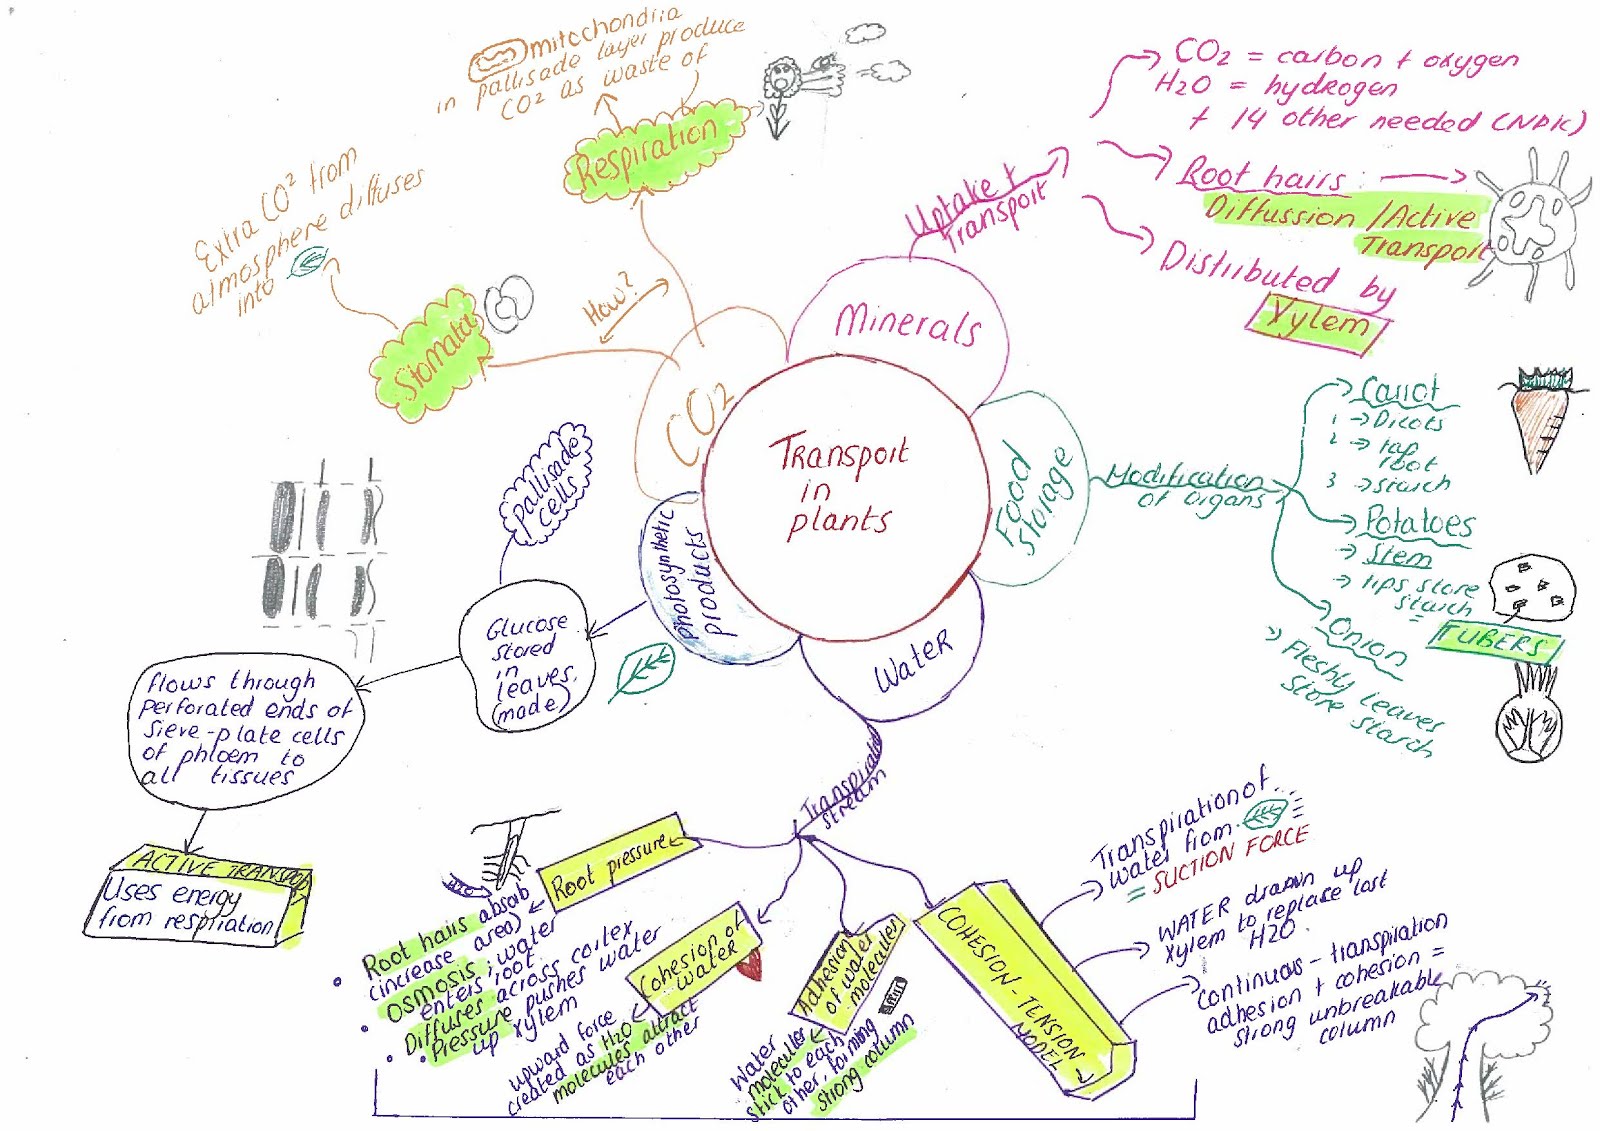 Transport
in
plants
CO2
How?
Respiration
mitochondria
in pallisade layer produce
CO2 as waste of
Stomata
Extra CO2 from
atmosphere diffuses
into
Minerals
Uptake +
Transport
CO2 = carbon + oxygen
H2O = hydrogen
+ 14 other needed (NPK)
Root hairs
Diffussion / Active
Transport
Distributed by
Xylem
Food
Storage
Modification
of organs
Carrot
1 → Dicots
2 → tap
root
3 → starch
Potatoes
→ Stem
→ tips store
starch
= TUBERS
Onion
→ Fleshly leaves
store starch
Water
stream
Root pressure
Root hairs absorb
(increase area)
• osmosis; water
enters root
• Diffuses across cortex
• Pressure pushes water
up xylem
Cohesion of
water
upward force
created as H2O
molecules attract
each other
Adhesion
of water
molecules
Water
molecules
stick to each
other, forming
strong column
COHESION - TENSION
MODEL
Transpiration of...
water from
= SUCTION FORCE
WATER drawn up
xylem to replace lost
H2O
Continuous - transpiration
adhesion + cohesion =
strong unbreakable
column
photosynthetic
products
Glucose
stored
in
leaves.
(made)
pallisade
cells
flows through
perforated ends of
sieve-plate cells
of phloem to
all tissues
ACTIVE TRANSPORT
Uses energy
from respiration